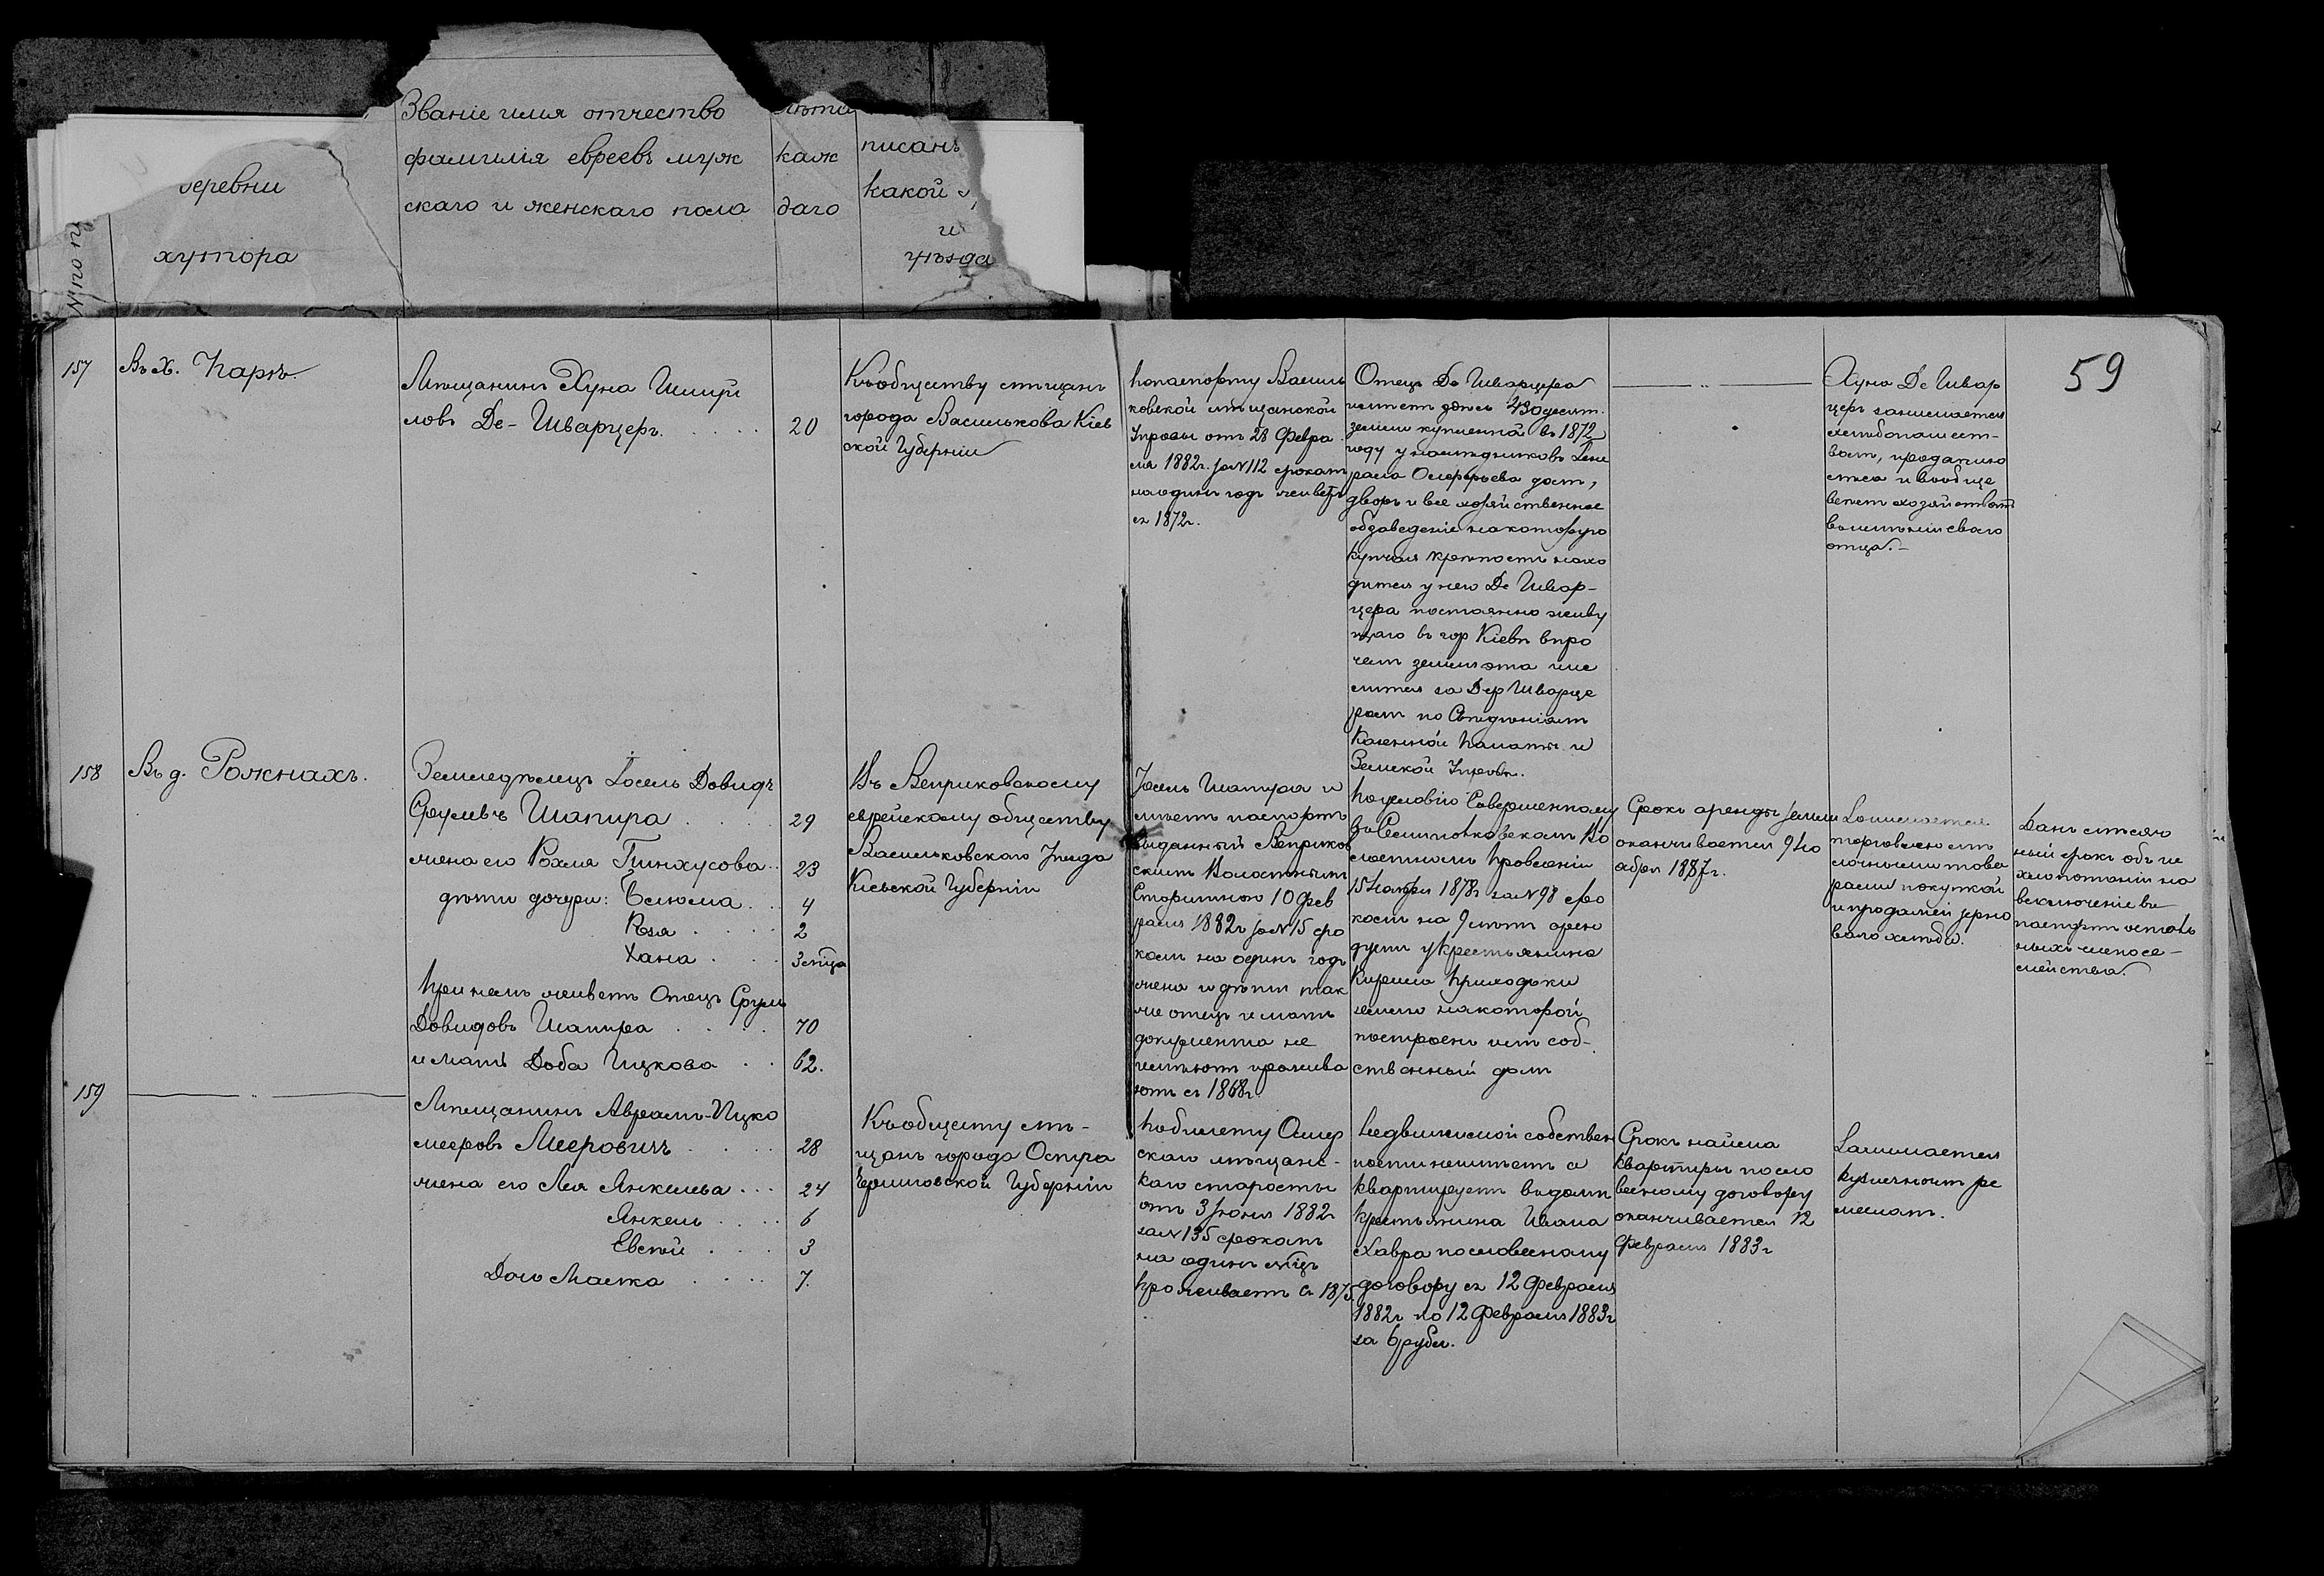 Званіе имя отчество
фамилія евреевъ муж
скаго и женскаго пола
лѣта
каж
даго
писанъ
какой
и
уѣзда
деревни
хутора
№ по
59
157
Въ х. Парнѣ.
Мѣщанинъ Хуна Шмуй
ловъ Де-Шварцеръ.
20
Къ обществу мѣщанъ
города Василькова Кіев
ской Губерніи
По паспорту Василь
ковской мѣщанской
Управы отъ 28 Февра
ля 1882г. за №112 срокомъ
на одинъ годъ живетъ
съ 1872г.
Отецъ Де Шварцера
имѣетъ здѣсь 430 десят.
земли купленной въ 1872
году у наслѣдниковъ Гене
рала домъ,
дворъ и все хозяйственное
обзаведеніе на которую
купчая крѣпость нахо
дится у него Де Швар-
цера постоянно живу
щаго въ гор Кіевѣ впро
чемъ земля эта чис
лится за Дер Шварце
ромъ по Свѣдѣніямъ
Казенной Палаты и
Земской Управы.
Хуна Де Швар
церъ занимается
хлѣбопашест-
вомъ, продажею
и вообще
ведетъ хозяйство
въ имѣніи своего
отца.-
158
Въ д. Рожнахъ.
Земледѣлецъ Іосель Довидъ
Срулевъ Шапира
29
жена его Рохля Пинхусова
23
дѣти дочери: Бслюма
4
Рося
2
Хана
3 мѣца
При немъ живетъ Отецъ Сруль
Довидовъ Шапира
70
и мать Доба Ицкова
62.
Къ Веприковскому
еврейскому обществу
Васильковскаго Уѣзда
Кіевской Губерніи
Іосель Шапира и
мѣетъ паспортъ
выданный Веприков
скимъ Волостнымъ
Старшиною 10 фев
раля 1882г за №15 сро
комъ на одинъ годъ
жена и дѣти так
же отецъ и мать
документа не
имѣютъ прожива
ютъ съ 1868г.
По условію Совершенному
въ Семиполковскомъ Во
лостномъ Правленіи
15 Ноября 1878г за №98 сро
комъ на 9 лѣтъ арен
дуетъ у крестьянина
Кирила Приходьки
землю на которой
построенъ имъ соб-
ственный домъ
Срокъ аренды земли
оканчивается 9 Но
абря 1887г.
Занимается
торговлею
мелочными това
рами покупкой
и продажей зерно
ваго хлѣба.
Данъ мѣсяч
ный срокъ объ ис
ходатайствованіи на
включеніе въ
паспортъ осталь
ныхъ членовъ се-
мейства.
159
Мѣщанинъ Абрамъ-Ицко
Мееровъ Мееровичъ
28
жена его Лея Янкелева
24
Янкель
6
Евсей
3
Дочь Маска
7.
Къ обществу мѣ-
щанъ города Остра
Черниговской Губерніи
По билету Остер
скаго мѣщанс-
каго старосты
отъ 3 Іюня 1882г
за №135 срокомъ
на одинъ мѣцъ
Проживаетъ съ 1875.
Недвижимой собствен
ности неимѣетъ а
квартируетъ въ домѣ
крестьянина Ивана
Хавра по словесному
договору съ 12 Февраля
1882г по 12 Февраля 1883г
за 6 рубл.
Срокъ найма
Квартиры по сло
весному договору
оканчивается 12
Февраля 1883г
Занимается
Кузнечнымъ ре
месломъ.